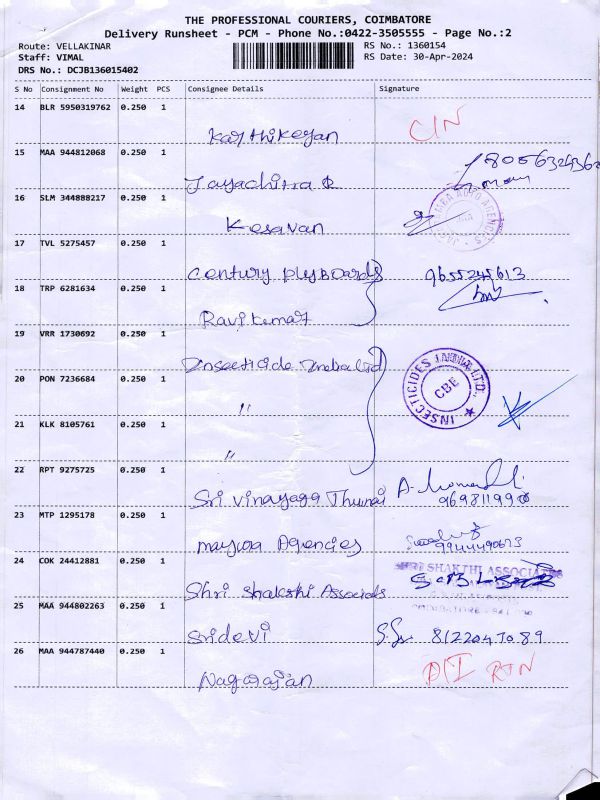 THE PROFESSIONAL COURIERS, COIMBATORE
Delivery Runsheet - PCM - Phone No.:0422-3505555 - Page No.:2
Route: VELLAKINAR
RS No.: 1360154
Staff: VIMAL
RS Date: 30-Apr-2024
DRS No.: DCJB136015402
S No Consignment No Weight PCS Consignee Details Signature
14 BLR 5950319762 0.250 1
Karthikeyan CIN
15 MAA 944812068 0.250 1
Jayachitra R
16 SLM 344888217 0.250 1
Kesavan
17 TVL 5275457 0.250 1
Century plyboards 9655245613
18 TRP 6281634 0.250 1
Ravikumar
19 VRR 1730692 0.250 1
Insecticide India Ltd
20 PON 7236684 0.250 1
"
INSECTICIDES INDIA LTD.,
CBE
21 KLK 8105761 0.250 1
"
22 RPT 9275725 0.250 1
Sri Vinayaga Thunai
23 MTP 1295178 0.250 1
mayura Agencies 9944490673
24 COK 24412881 0.250 1
SHAKTHI ASSOCIATES
Shri Shakthi Associats
25 MAA 944802263 0.250 1
Sridevi 8122047089
26 MAA 944787440 0.250 1
Nagarajan RTN